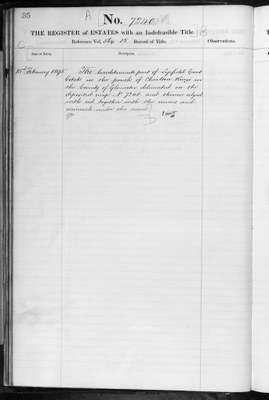 35
A
No. 7240
THE REGISTER of ESTATES with an Indefeasible Title.
B
Reference Vol. Fly. 15. Record of Title.
Observations.
C
Date of Entry.
Description.
February 1895
The hereditaments part of East
Estate in the parish of Charlton Kings in
the County of Gloucester delineated on the
deposited map No. 7240 and thereon edged
with red together with the mines and
minerals under the same